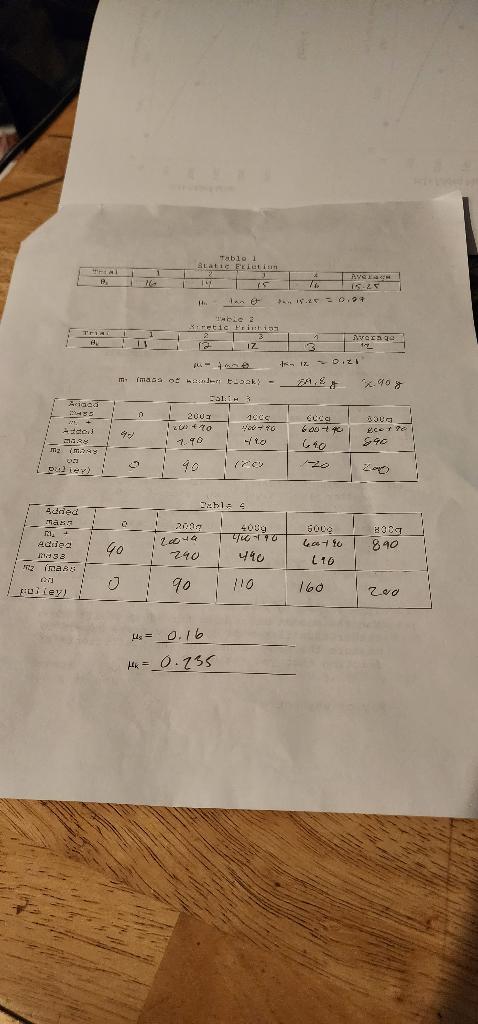 Table 1
Static Friction
Trial 1 2 3 4 Average
θs 16 14 15 16 15.25
μs = tan θ tan 15.25 = 0.27
Table 2
Kinetic Friction
Trial 1 2 3 4 Average
θk 11 12 12 3 12
μk = tan θ tan 12 = 0.21
m₁ (mass of wooden block) = g ≈ 90 g
Table 3
Added mass 0 200g 400g 600g 800g
m₁ + Added mass 90 200+90 290 400+90 490 600+90 690 800+90 890
m₂ (mass on pulley) 0 90 120 200
Table 4
Added mass 0 200g 400g 600g 800g
m₁ + Added mass 90 290 400+90 490 600+90 690 890
m₂ (mass on pulley) 0 90 110 160 200
μs = 0.16
μk = 0.235